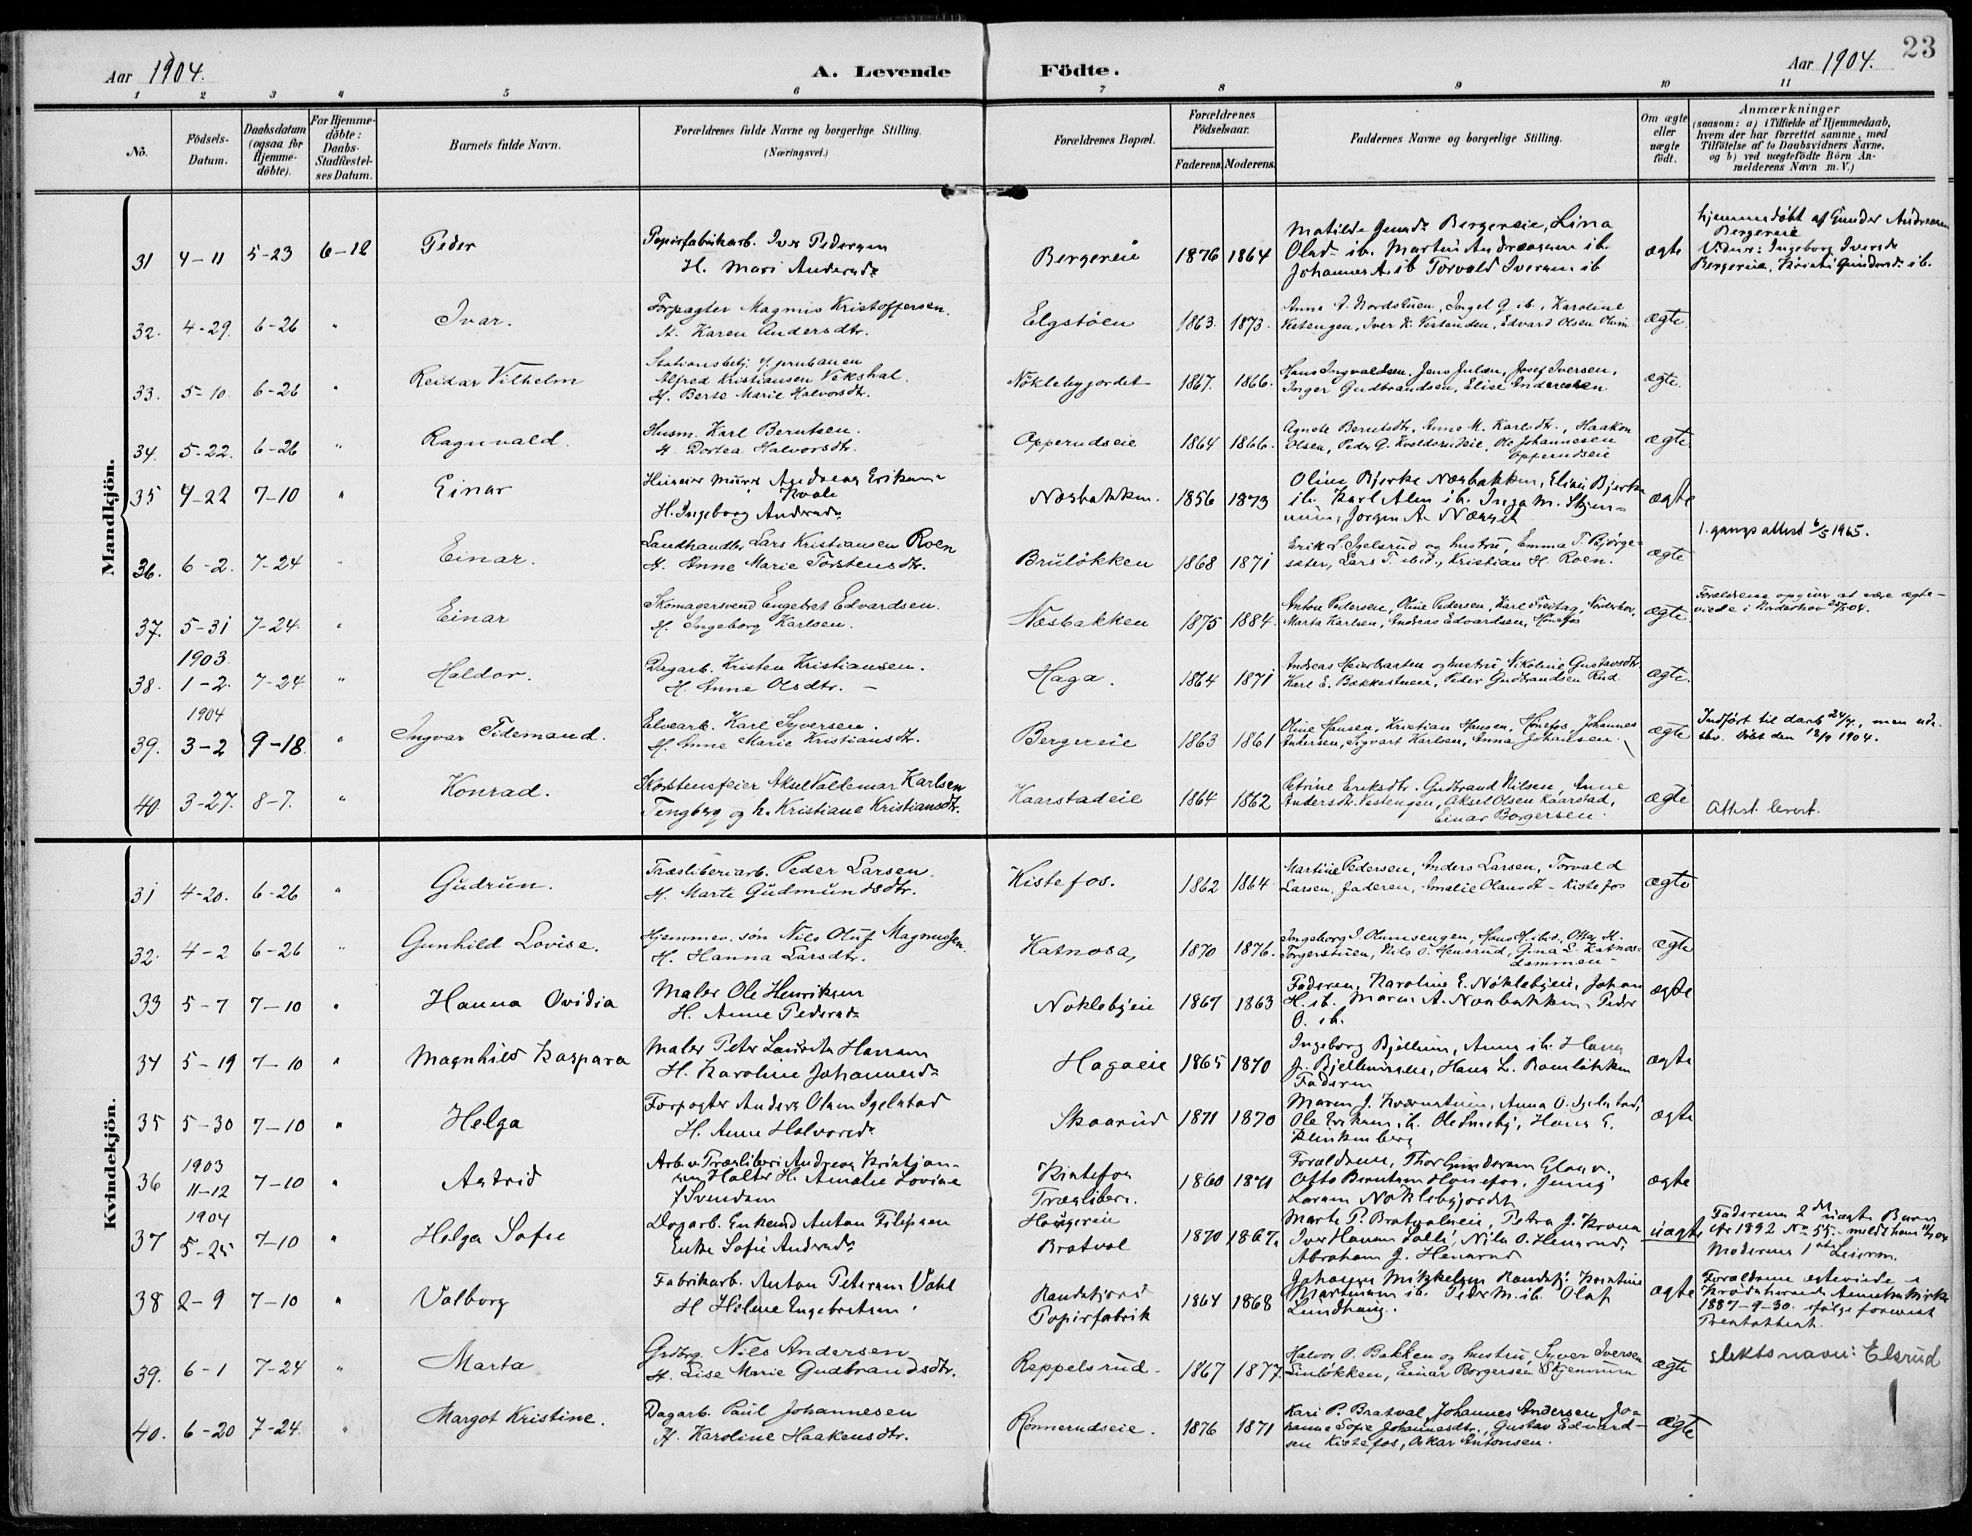 23
Aar 1904.
A. Levende Födte.
Aar 1904.
1 2 3 4 5 6 7 8 9 10 11
No.
Födsels-Datum.
Daabsdatum (ogsaa for Hjemme-döbte).
For Hjemme-döbte: Daabs-Stadfæstel-ses Datum.
Barnets fulde Navn.
Forældrenes fulde Navne og borgerlige Stilling. (Næringsvei.)
Forældrenes Bopæl.
Forældrenes Födselsaar.
Faderens. Moderens.
Faddernes Navne og borgerlige Stilling.
Om ægte eller uægte födt.
Anmærkninger
(saasom: a) i Tilfælde af Hjemmedaab, hvem der har forrettet samme, med Tilföielse af to Daabsvidners Navne, og b) ved uægtefödte Börn An-melderens Navn m. V.)
Mandkjön.
31 4-11 5-23 6-12 Peder
Papirfabrikarb. Iver Pedersen
H. Mari Andersdr
Bergereie 1876 1864
Matilde Gunds Bergereie, Lina
Olsd. ib. Martin Andreasen ib.
Johannes A. ib Torvald Iversen ib
ægte
hjemmedöbt af Gunder Andreasen
Bergereie
Vidner: Ingeborg Iversd
Bergereie, Kristi Gundersd. ib.
32. 4-29. 6-26 " Ivar.
Forpagter Magnus Kristoffersen.
H. Karen Andersdtr.
Elgstöen 1863. 1873.
Anna A. Nordstuen, Ingel G. ib., Karoline
Vestengen, Iver K. Vestenden, Edvard Olsen
ægte.
33. 5-10 6-26 " Reidar Vilhelm
Alfred Kristiansen Vekshal.
H. Berte Marie Halvorsdtr.
Nöklebygjordet 1867. 1866.
Hans Ingvaldsen, Jens Julæn, Josef Iversen,
Inger Gudbrandsen, Elise Andersen
ægte.
34. 5-22. 6-26 " Ragnvald.
Husm. Karl Berntsen.
H. Dortea Halvorsdtr.
Opperudseie 1864 1866.
Agnete Berntsdtr., Anne M. Karlsdtr., Haakon
Olsen, Peder G. Kvelderudeie, Ole Johannesen
Opperudseie
ægte
35 4-22 7-10 " Einar
Huseier Murer Andreas Eriksen
Kvale
H. Ingeborg Andersdr
Næsbakken. 1856 1873
Oline Bjerke Næsbakken, Eline Bjerke
ib. Karl Alm ib. Inga M. Skjen-
num, Jorgen A. Næsset
ægte
36. 6-2. 7-24 Einar.
Landhandler Lars Kristiansen Roen
H. Anne Marie Torstensdtr.
Brulökken 1868 1871
Erik L. Igelsrud og hustru, Emma T. Bjørge-
sæter, Lars T. ibid., Kristian H. Roen.
ægte
1. gangs attest 6/5 1965.
37. 5-31 7-24. " Einar
Skomagersvend Engebret Edvardsen.
H. Ingeborg Karlsen.
Næsbakken 1875 1884.
Anton Pedersen, Oline Pedersen, Karl Freitag, Norderhov,
Marta Karlsen, Andreas Edvardsen, Hönefos
ægte.
Forældrene opgiver at være ægte-
viede i Norderhov 23/5 04.
1903.
38. 1-2. 7-24 " Haldor.
Dagarb. Kristen Kristiansen.
H. Anne Olsdtr. —
Haga. 1864 1871
Andreas Heierbraaten og hustru, Nikoline Gustavsdtr.
Karl E. Bækkestuen, Peder Gudbrandsen Rud
ægte.
1904
39. 3-2 9-18. " Ingvar Tidemand.
Elvearb. Karl Syversen.
H. Anne Marie Kristiansdtr.
Bergereie 1863 1861
Oline Hansen, Kristian Hansen, Hönefos, Johannes
Andersen, Sigvart Karlsen, Anna Johansen.
ægte
Indført til daab 24/7, men ude-
blev. Döbt den 18/9 1904.
40 3-27. 8-7. " Konrad.
Skorstensfeier Aksel Valdemar Karlsen
Tengberg og h. Kristiane Kristiansdtr.
Kaarstadeie 1864 1862
Petrine Eriksdtr. Gudbrand Nilsen, Anne
Andersdtr. Vestengen, Aksel Olsen Kaarstad,
Einar Borgersen.
ægte
Attest levert.
Kvindekjön.
31 4-20. 6-26 " Gudrun.
Træsliberiarb. Peder Larsen.
H. Marte Gudmundsdtr.
Kistefos. 1862 1864
Martine Pedersen, Anders Larsen, Torvald
Larsen, Faderen, Amalie Olausdt - Kistefos
ægte
32. 4-2 6-26 " Gunhild Lovise.
Hjemmev. sön Nils Oluf Magnussen.
H. Hanna Larsdtr.
Katnosa, 1870 1876.
Ingeborg J. Olumsengen, Hans H. ibid., Otter H.
Torgerstuen, Nils O. Henerud, Gina L. Katnos-
dammen -
ægte
33 5-7 7-10 " Hanna Ovidia
Maler Ole Henriksen
H. Anne Pedersdr
Noklebyeie 1867 1863
Faderen, Karoline E. Nöklebyeie, Johan
H. ib. Maren A. Næsbakken, Peder
O. ib.
ægte
34 5-19 7-10 " Magnhild Kaspara
Maler Peter Laurits Hansen
H. Karoline Johannesdr
Hagaeie 1865 1870
Ingeborg Bjellum, Anna ib. Hans
J. Bjellumseie, Hans L. Ramlökken
Faderen
ægte
35 5-30 7-10 " Helga
Forpagter Anders Olsen Igelstad
H. Anne Halvorsdr
Skaarud 1871 1870
Maren J. Kværnstuen, Anna O. Igelstad,
Ole Eriksen ib. Ole Smeby, Hans G.
Klinkenberg
ægte
1903
36 11-12 7-10 " Astrid
Arb. v. Træsliberi Andreas Kristian-
sen Holter H. Amalie Lovise
f. Svendsen
Kistefos
Træsliberi. 1860 1871
Forældrene, Thor Gundersen
Otto Berntsen Hönefos, Jenny
Larsen Noklebygjordet
ægte
1904
37 5-25 7-10 " Helga Sofie
Dagarb. Enkemd Anton Filipsen
Enke Sofie Andersdr
Haugereie
Bratval 1870 1867.
Marte P. Bratvalseie, Petra J. Krona
Iver Hansen Lolli, Nils O. Henerud,
Abraham J. Henerud
uægte
Faderens 2det uægte Barn
cfr 1892 No 55.
Moderens 1ste Leierm.
38 2-9 7-10 " Valborg
Fabrikarb. Anton Petersen Vahl
H Helene Engebretsen
Randsfjord
Papirfabrik 1864 1868
Johannes Mikkelsen Randsfj. Kristine
Martinsen ib. Peder M. ib. Olaf
Lundhaug.
ægte
Forældrene ægteviede i
Krödsherreds Annexkirke
1887-9-30. ifölge forevist
Presteattest.
39. 6-1 7-24 " Marta
Grdbrg. Nils Andersen
H. Lise Marie Gudbrandsdtr.
Reppelsrud. 1867 1877.
Halvor O. Bakken og hustru, Syver Iversen
Linlökken, Einar Borgersen Skjennum
ægte
slektsnavn: Elsrud
40. 6-20 7-24. " Margot Kristine.
Dagarb. Paul Johannesen
H. Karoline Haakensdtr.
Rönnerudseie. 1876 1871
Kari P. Bratval, Johannes Andersen, Jo-
hanne Sofie Johannesdtr., Gustav Edvard-
sen Kistefos, Oskar Antonsen.
ægte